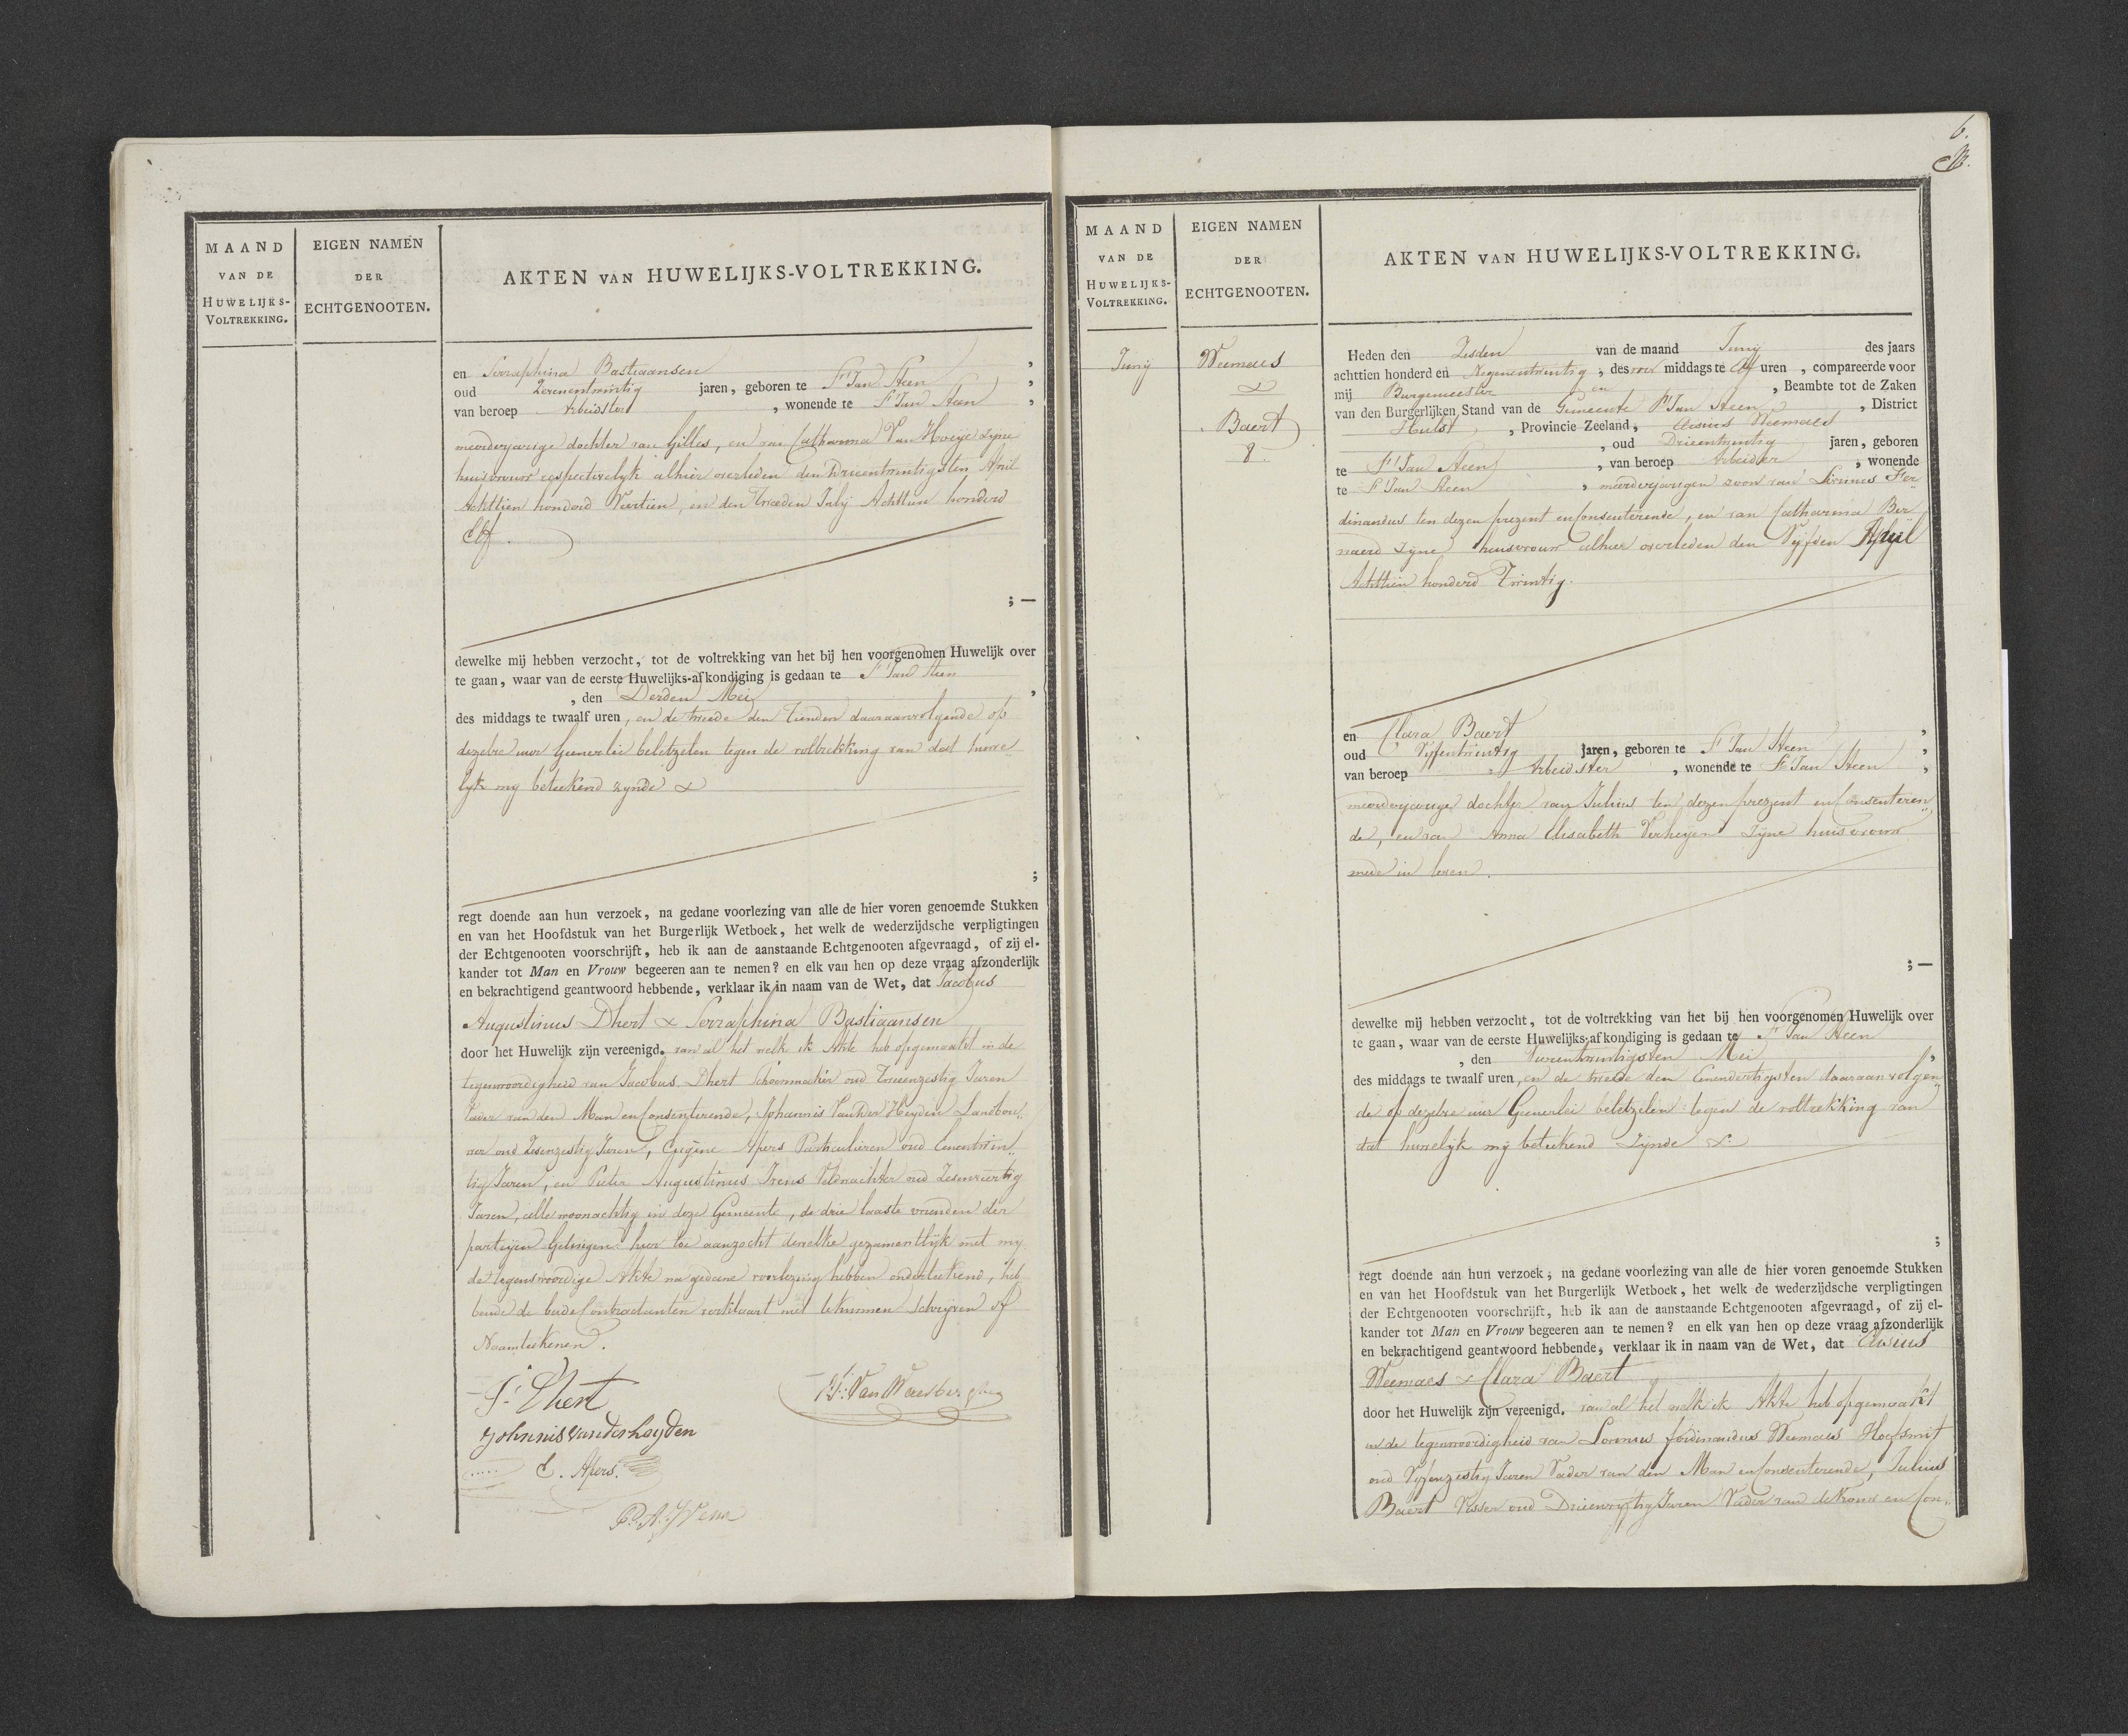 MAAND
VAN DE
HUWELIJKS-
VOLTREKKING.
EIGEN NAMEN
DER
ECHTGENOOTEN.
AKTEN VAN HUWELIJKS-VOLTREKKING.
en Serraphina Bastiaansen ,
oud Zevenentwintig jaren, geboren te St Jan Steen ,
van beroep Arbeidster , wonende te St Jan Steen ,
meerderjarige dochter van Gilles, en van Catharina Van Hoeije zyne
huisvrouw respectivelyk alhier overleden den Drieentwintigsten April
Achttien honderd Veertien, en den Tweeden July Achttien honderd
Elf.
; —
dewelke mij hebben verzocht, tot de voltrekking van het bij hen voorgenomen Huwelijk over
te gaan, waar van de eerste Huwelijks-afkondiging is gedaan te St Jan Steen
, den Derden Mei ,
des middags te twaalf uren, en de tweede den Tienden daaraanvolgende op
dezelve uur Geenerlei beletzelen tegen de voltrekking van dat huwe
lyk my beteekend zynde &
;
regt doende aan hun verzoek, na gedane voorlezing van alle de hier voren genoemde Stukken
en van het Hoofdstuk van het Burgerlijk Wetboek, het welk de wederzijdsche verpligtingen
der Echtgenooten voorschrijft, heb ik aan de aanstaande Echtgenooten afgevraagd, of zij el-
kander tot Man en Vrouw begeeren aan te nemen? en elk van hen op deze vraag afzonderlijk
en bekrachtigend geantwoord hebbende, verklaar ik in naam van de Wet, dat Jacobus
Augustinus Dhert & Serraphina Bastiaansen
door het Huwelijk zijn vereenigd. van al het welk ik Akte heb opgemaakt in de
tegenwoordigheid van Jacobus Dhert Schoenmaker oud Tweenzestig Jaren
Vader van den Man en Consenterende, Johannis Vander Heyden Landbou„
wer oud Zesenzestig Jaren, Eugène Apers Particulieren oud Eenentwin„
tig Jaren, en Pieter Augustinus Ivens Veldwachter oud Zesenveertig
Jaren, alle woonachtig in deze Gemeente, de drie laaste vrienden der
partijen Getuigen hier toe aanzocht dewelke gezamentlyk met my
de tegenswoordige Akte na gedane voorlezing hebben onderteekend, heb
bende de beide Contractanten verklaart niet te kunnen Schryven of
Naamteekenen.
J. Dhert
Johnnis vanderheyden
E. Apers.
P. A. Ivens
MAAND
VAN DE
HUWELIJKS-
VOLTREKKING.
EIGEN NAMEN
DER
ECHTGENOOTEN.
AKTEN VAN HUWELIJKS-VOLTREKKING.
6.
Juny
Weemaes
&
Baert
8.
Heden den Zesden van de maand Juny des jaars
achttien honderd en Negenentwintig , des voor middags te Elf uren , compareerde voor
mij Burgemeester en , Beambte tot de Zaken
van den Burgerlijken Stand van de Gemeente St Jan Steen , District
Hulst , Provincie Zeeland, Weemaes
, oud Drieentwintig jaren, geboren
te St Jan Steen , van beroep Arbeider , wonende
te St Jan Steen , meerderjarigen zoon van Livinus Fer„
dinandus ten dezen prezent en Consenterende, en van Catharina Ber
naerd Zyne huisvrouw alhier overleden den Vyfden April
Achttien honderd Twintig.
en Clara Baert ,
oud Vyfentwintig jaren, geboren te St Jan Steen ,
van beroep Arbeidster , wonende te St Jan Steen ,
meerderjarige dochter van Julius ten dezen prezent en Consenteren„
de, en van Anna Elisabeth Verheyen Zyne huisvrouw
mede in leven.
; —
dewelke mij hebben verzocht, tot de voltrekking van het bij hen voorgenomen Huwelijk over
te gaan, waar van de eerste Huwelijks-afkondiging is gedaan te St Jan Steen
, den Vierentwintigsten Mei ,
des middags te twaalf uren, en de tweede den Eenendertigsten daaraan volgen„
de op dezelve uur Geenerlei beletzelen tegen de voltrekking van
dat huwelyk my beteekend Zynde &
;
regt doende aan hun verzoek, na gedane voorlezing van alle de hier voren genoemde Stukken
en van het Hoofdstuk van het Burgerlijk Wetboek, het welk de wederzijdsche verpligtingen
der Echtgenooten voorschrijft, heb ik aan de aanstaande Echtgenooten afgevraagd, of zij el-
kander tot Man en Vrouw begeeren aan te nemen? en elk van hen op deze vraag afzonderlijk
en bekrachtigend geantwoord hebbende, verklaar ik in naam van de Wet, dat
Weemaes & Clara Baert
door het Huwelijk zijn vereenigd. van al het welk ik Akte heb opgemaakt
in de tegenwoordigheid van Livinus ferdinandus Weemaes Hoefsmit
oud Vyfenzestig Jaren Vader van den Man en Consenterende, Julius
Baert Visser oud Drieenvyftig Jaren Vader van de Vrouw en Con„